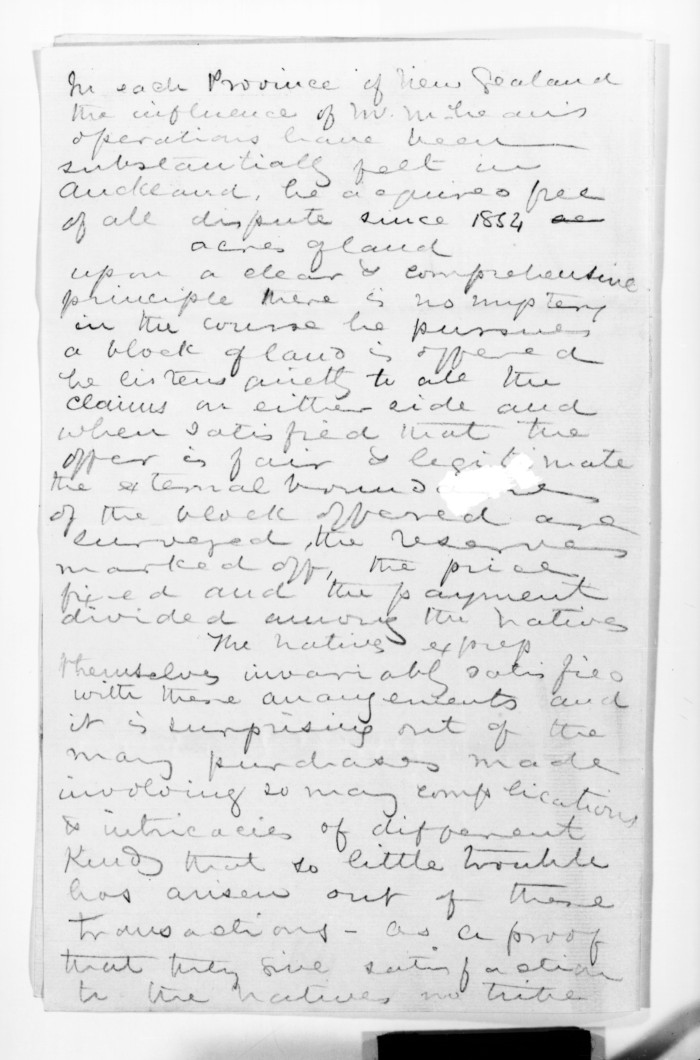 In each Province of New Zealand
the influence of Mr. McLean's
operations have been
substantially felt in
Auckland, he acquired free
of all dispute since 1854
acres of land
upon a clear & comprehensive
principle there is no mystery
in the course he pursues
a block of land is offered
he listens quietly to all the
claims on either side and
when satisfied that the
offer is fair & legitimate
the external
of the block offered are
surveyed, the reserves
marked off, the price
fixed and the payment
divided among the natives
The natives express
themselves invariably satisfied
with these arrangements and
it is surprising out of the
many purchases made
involving so many complications
& intricacies of different
Kinds that so little trouble
has arisen out of these
transactions - as a proof
that they give satisfaction
to the natives no tribe